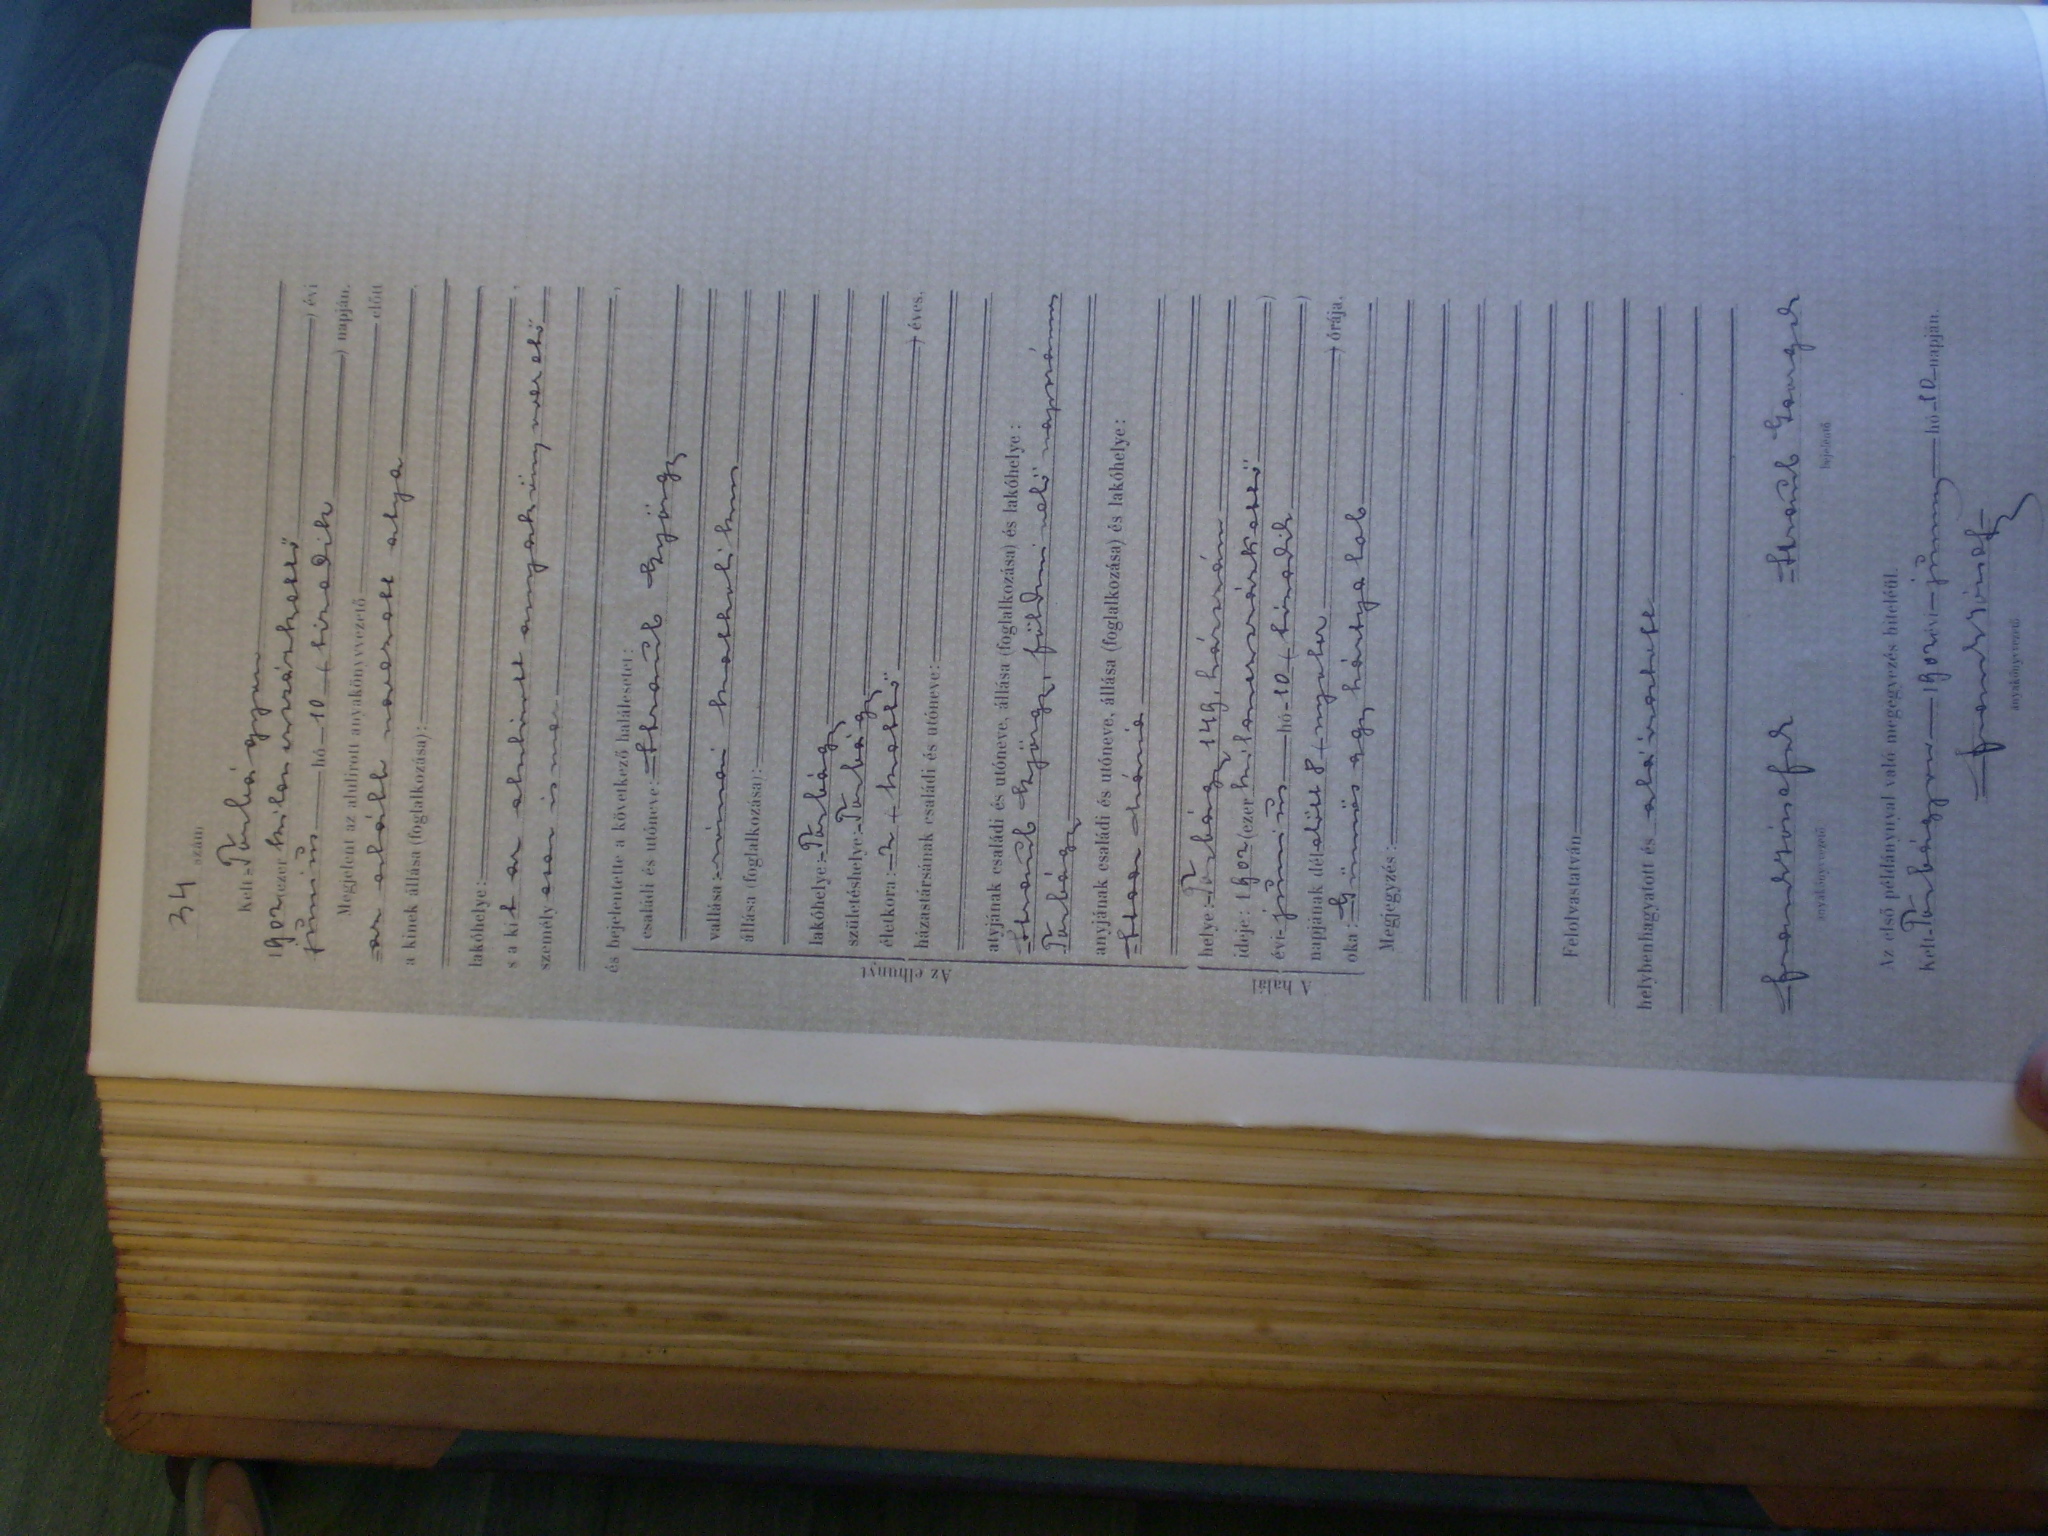 34 szám
Kelt Torbágyon
1902 ezerkilencszázkettő évi
június hó 10 (tizedik) napján.
Megjelent az alulirott anyakönyvvezető előtt
az alább nevezett atya
a kinek állása (foglalkozása):
lakóhelye:
s a kit az alulirott anyakönyvvezető
személyesen ismer
és bejelentette a következő halálesetet:
Az elhunyt
családi és utóneve: Straub György
vallása: római katholikus
állása (foglalkozása):
lakóhelye: Torbágy
születéshelye: Torbágy
életkora: 2 (kettő) éves.
házastársának családi és utóneve:
atyjának családi és utóneve, állása (foglalkozása) és lakóhelye:
Straub György, földmivelő napszámos
Torbágy
anyjának családi és utóneve, állása (foglalkozása) és lakóhelye:
A halál
helye: Torbágy, 149. házszám
ideje: 1902 (ezerkilencszázkettő)
évi június hó 10 (tizedik)
napjának délelőtt 8 (nyolc) órája.
oka: Gümős agyhártya lob
Megjegyzés:
Felolvastatván
helybenhagyatott és aláiratott
József Straub Georg
anyakönyvvezető bejelentő
Az első példánynyal való megegyezés hiteléül.
Kelt Torbágyon 1902 évi június hó 10 napján.
József
anyakönyvvezető